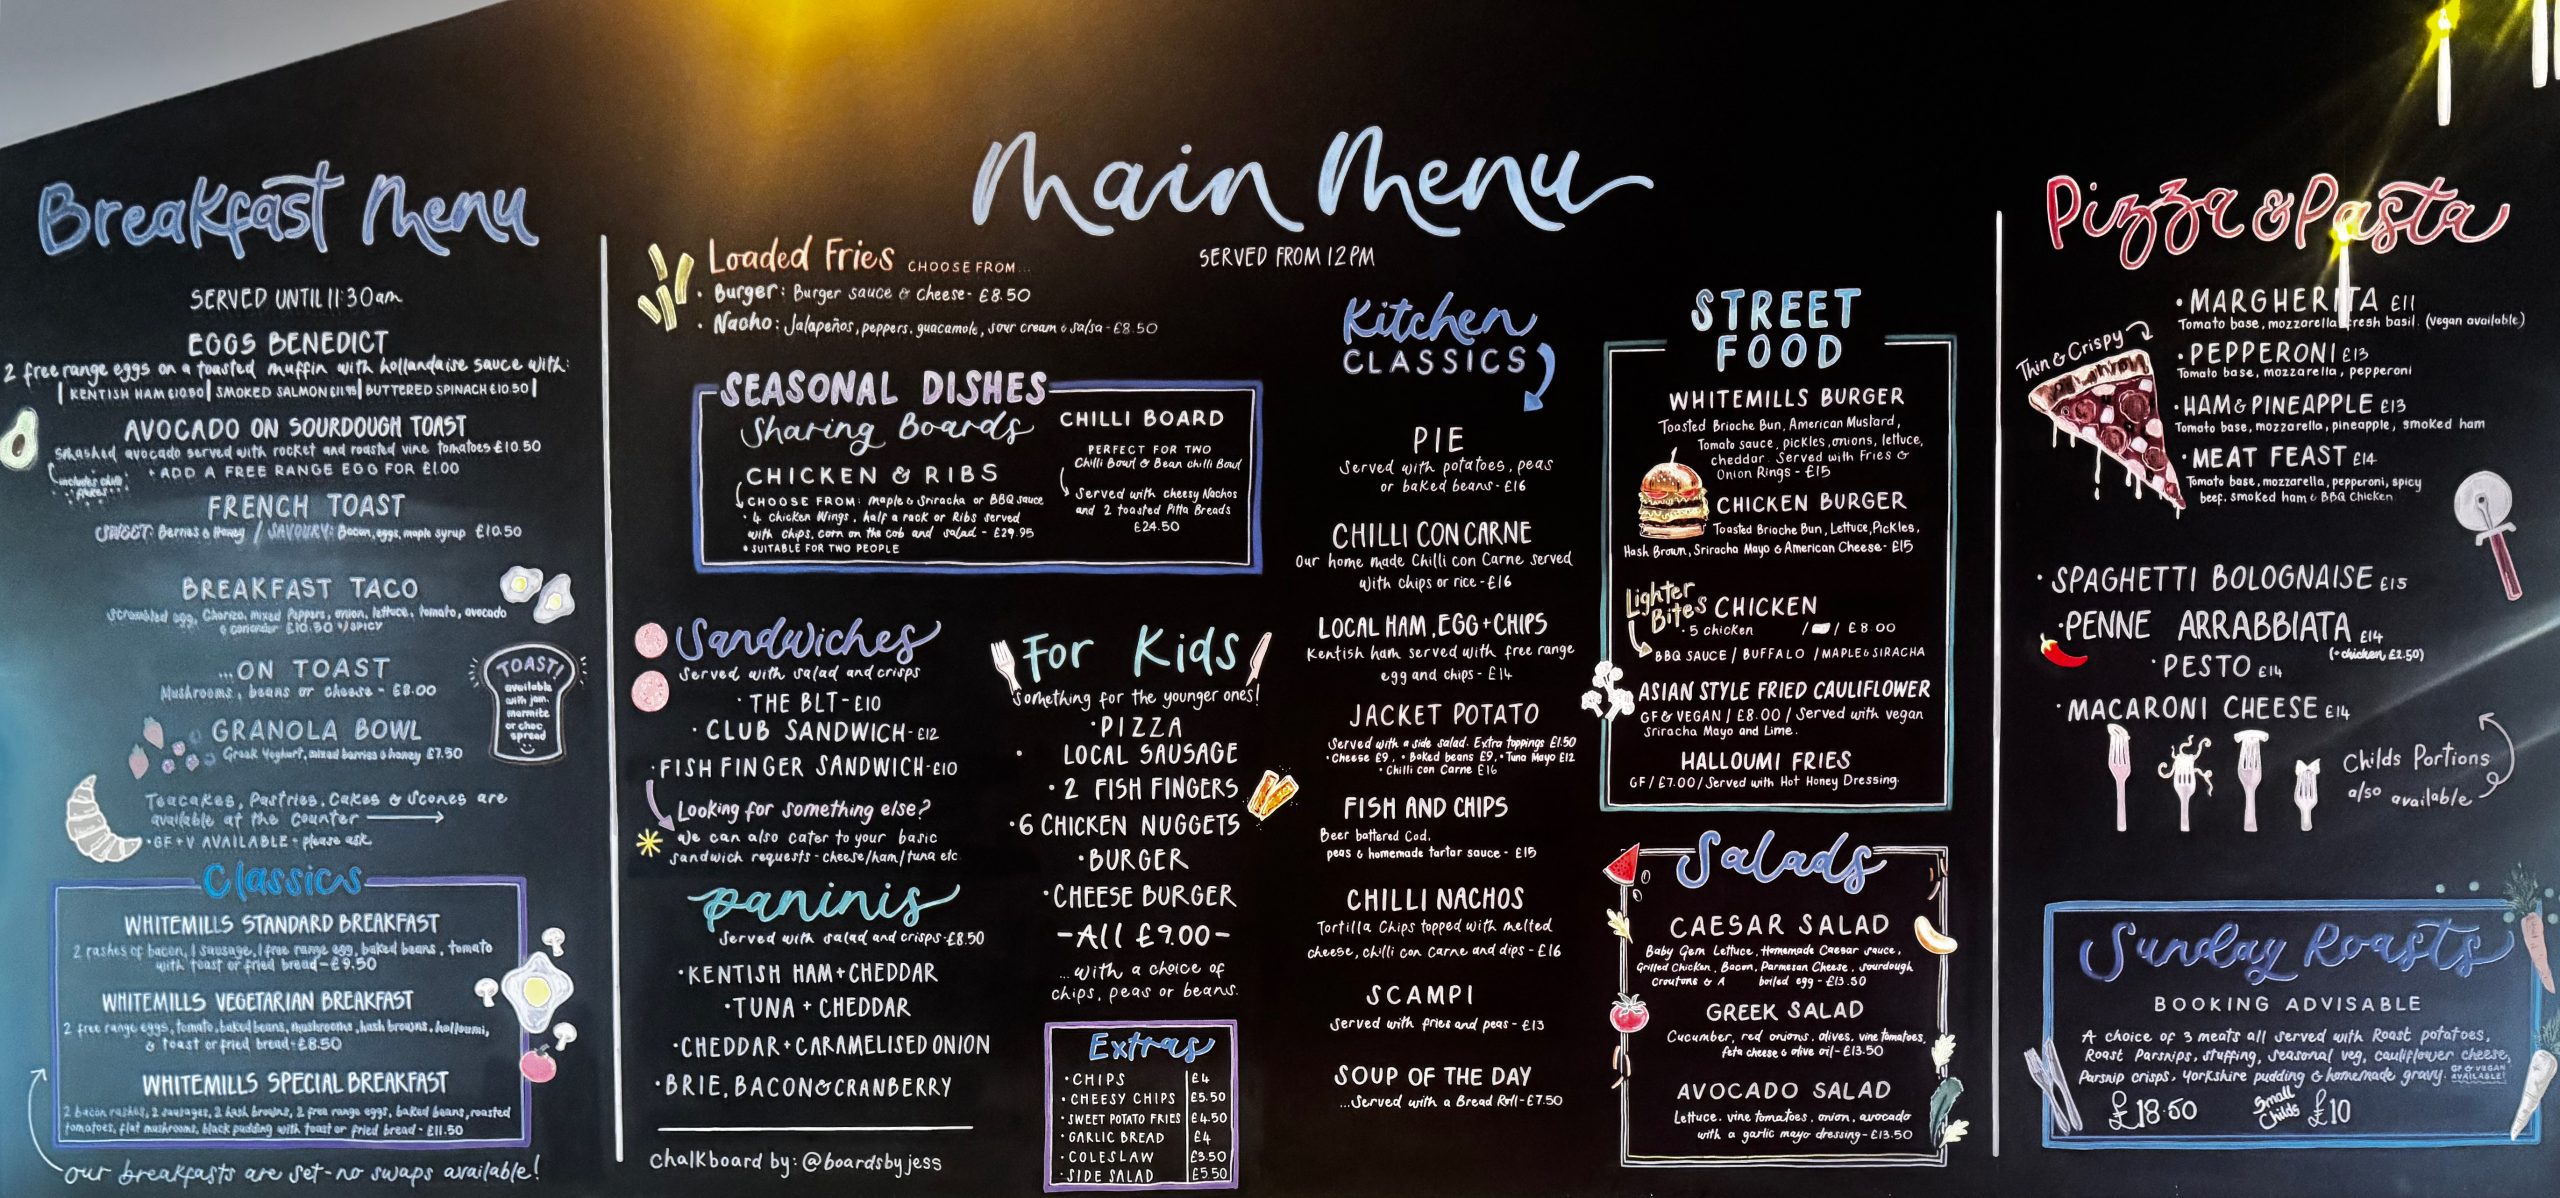 Breakfast Menu
SERVED UNTIL 11:30am
EGGS BENEDICT
2 free range eggs on a toasted muffin with hollandaise sauce with:
| KENTISH HAM £10.90 | SMOKED SALMON £11.95 | BUTTERED SPINACH £10.50 |
AVOCADO ON SOURDOUGH TOAST
smashed avocado served with rocket and roasted vine tomatoes £10.50
+ ADD A FREE RANGE EGG FOR £1.00
includes chilli
flakes
FRENCH TOAST
SWEET: Berries & Honey / SAVOURY: Bacon, eggs, maple syrup £10.50
BREAKFAST TACO
Scrambled egg, Chorizo, mixed Peppers, onion, lettuce, tomato, avocado
& coriander £10.50 */SPICY
...ON TOAST
Mushrooms, beans or cheese - £8.00
TOAST!
available
with jam,
marmite
or choc
spread
GRANOLA BOWL
Greek Yoghurt, mixed berries & honey £7.50
Teacakes, Pastries, Cakes & Scones are
available at the counter
• GF + V AVAILABLE - please ask
Classics
WHITEMILLS STANDARD BREAKFAST
2 rashes of bacon, 1 sausage, 1 free range egg, baked beans, tomato
with toast or fried bread - £9.50
WHITEMILLS VEGETARIAN BREAKFAST
2 free range eggs, tomato, baked beans, mushrooms, hash browns, halloumi,
& toast or fried bread - £8.50
WHITEMILLS SPECIAL BREAKFAST
2 bacon rashes, 2 sausages, 2 hash browns, 2 free range eggs, baked beans, roasted
tomatoes, flat mushrooms, black pudding with toast or fried bread - £11.50
our breakfasts are set - no swaps available!
Main Menu
SERVED FROM 12PM
Loaded Fries CHOOSE FROM...
• Burger: Burger sauce & cheese - £8.50
• Nacho: Jalapeños, peppers, guacamole, sour cream & salsa - £8.50
SEASONAL DISHES
Sharing Boards
CHICKEN & RIBS
CHOOSE FROM: Maple & Sriracha or BBQ sauce
• 4 chicken Wings, half a rack or Ribs served
with chips, corn on the cob and salad - £29.95
• SUITABLE FOR TWO PEOPLE
CHILLI BOARD
PERFECT FOR TWO
Chilli Bowl & Bean chilli Bowl
Served with cheesy Nachos
and 2 toasted Pitta Breads
£24.50
Sandwiches
Served with salad and crisps
• THE BLT - £10
• CLUB SANDWICH - £12
• FISH FINGER SANDWICH - £10
Looking for something else?
We can also cater to your basic
sandwich requests - cheese/ham/tuna etc.
paninis
Served with salad and crisps - £8.50
• KENTISH HAM + CHEDDAR
• TUNA + CHEDDAR
• CHEDDAR + CARAMELISED ONION
• BRIE, BACON & CRANBERRY
chalkboard by: @boardsbyjess
For Kids
Something for the younger ones!
• PIZZA
• LOCAL SAUSAGE
• 2 FISH FINGERS
• 6 CHICKEN NUGGETS
• BURGER
• CHEESE BURGER
- All £9.00 -
...with a choice of
chips, peas or beans.
Extras
• CHIPS £4
• CHEESY CHIPS £5.50
• SWEET POTATO FRIES £4.50
• GARLIC BREAD £4
• COLESLAW £3.50
• SIDE SALAD £5.50
Kitchen
CLASSICS
PIE
Served with potatoes, peas
or baked beans - £16
CHILLI CON CARNE
Our home made Chilli con Carne served
with chips or rice - £16
LOCAL HAM, EGG + CHIPS
Kentish ham served with free range
egg and chips - £14
JACKET POTATO
Served with a side salad. Extra toppings £1.50
• Cheese £9, • Baked beans £9, • Tuna Mayo £12
• Chilli con Carne £16
FISH AND CHIPS
Beer battered Cod,
peas & homemade tartar sauce - £15
CHILLI NACHOS
Tortilla Chips topped with melted
cheese, chilli con carne and dips - £16
SCAMPI
Served with fries and peas - £13
SOUP OF THE DAY
...Served with a Bread Roll - £7.50
STREET
FOOD
WHITEMILLS BURGER
Toasted Brioche Bun, American Mustard,
Tomato sauce, pickles, onions, lettuce,
cheddar. Served with Fries &
Onion Rings - £15
CHICKEN BURGER
Toasted Brioche Bun, Lettuce, Pickles,
Hash Brown, Sriracha Mayo & American Cheese - £15
Lighter
Bites
CHICKEN
• 5 chicken / / £8.00
BBQ SAUCE / BUFFALO / MAPLE & SIRACHA
ASIAN STYLE FRIED CAULIFLOWER
GF & VEGAN / £8.00 / Served with vegan
Sriracha Mayo and Lime.
HALLOUMI FRIES
GF / £7.00 / Served with Hot Honey Dressing.
Salads
CAESAR SALAD
Baby Gem Lettuce, Homemade Caesar sauce,
Grilled Chicken, Bacon, Parmesan Cheese, sourdough
croutons & A boiled egg - £13.50
GREEK SALAD
Cucumber, red onions, olives, vine tomatoes,
feta cheese & olive oil - £13.50
AVOCADO SALAD
Lettuce, vine tomatoes, onion, avocado
with a garlic mayo dressing - £13.50
Pizza & Pasta
Thin & Crispy
• MARGHERITA £11
Tomato base, mozzarella, fresh basil. (vegan available)
• PEPPERONI £13
Tomato base, mozzarella, pepperoni
• HAM & PINEAPPLE £13
Tomato base, mozzarella, pineapple, smoked ham
• MEAT FEAST £14
Tomato base, mozzarella, pepperoni, spicy
beef, smoked ham & BBQ Chicken
• SPAGHETTI BOLOGNAISE £15
• PENNE ARRABBIATA £14
(+ chicken £2.50)
• PESTO £14
• MACARONI CHEESE £14
Childs Portions
also available
Sunday Roasts
BOOKING ADVISABLE
A choice of 3 meats all served with Roast potatoes,
Roast Parsnips, stuffing, seasonal veg, cauliflower cheese,
Parsnip crisps, yorkshire pudding & homemade gravy. GF & VEGAN
AVAILABLE!
£18.50 Small
Childs £10